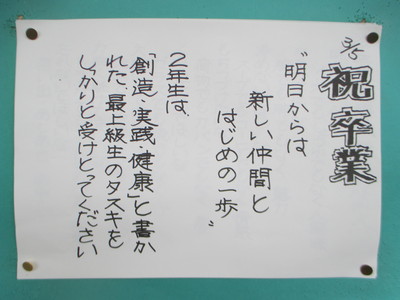 3/5
祝卒業
“明日からは
新しい仲間と
はじめの一歩”
2年生は、
「創造・実践・健康」と書か
れた、最上級生のタスキを
しっかりと受けとってください